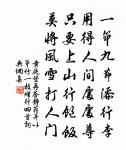 一節九節添行李
用得人間處處尊
只要上山行飽飯
莫將風雪打人門
黃庭堅再答靜翁并以
筇竹一枝贈行四首詞
典網集